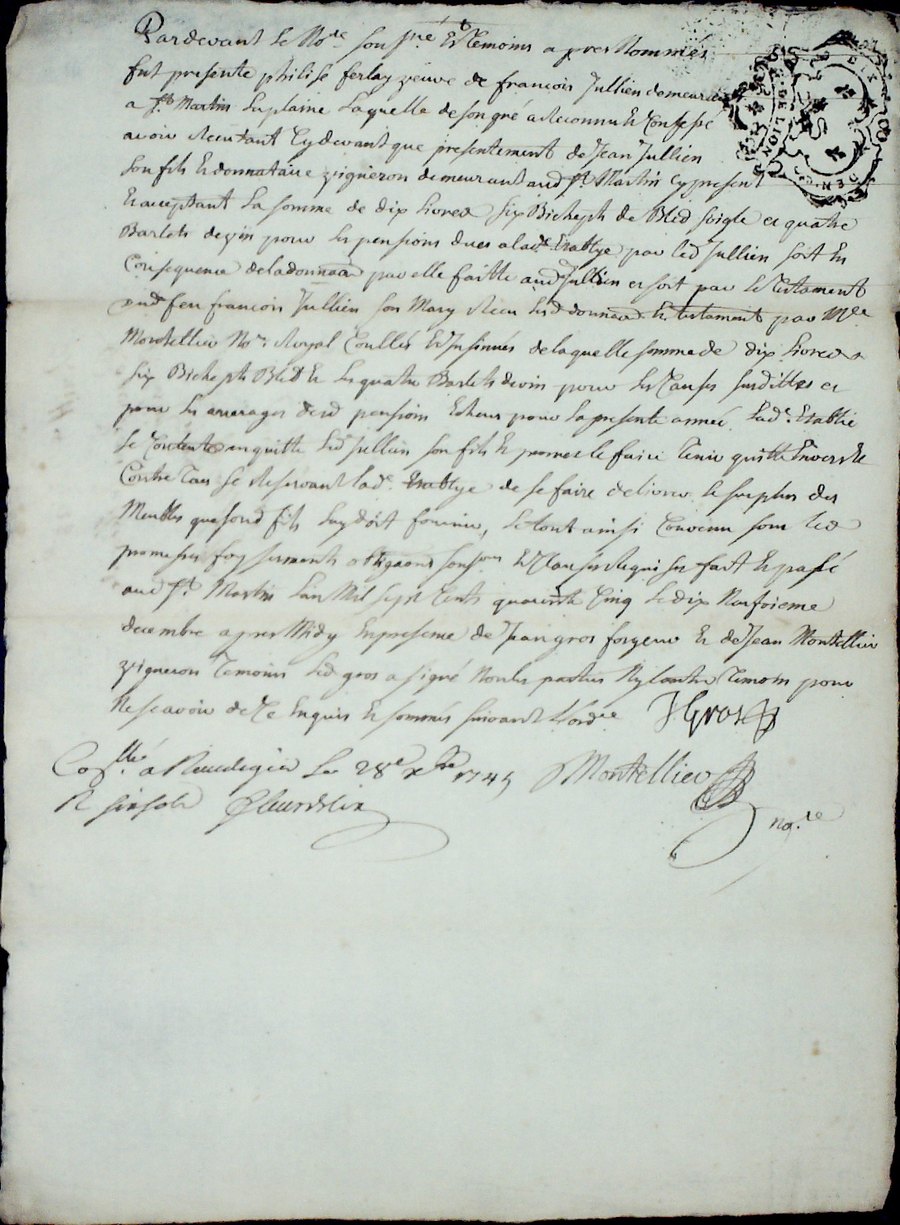 Pardevant le No.re sousné Et temoins apres Nommés
fut presente philise ferlay veuve de francois Jullien demeurant
a st Martin la plaine Laquelle de son gré a Reconnu Et Confessé
avoir Recu tant Cydevant que presentement de Jean Jullien
son fils Et donnataire vigneron demeurant aud st Martin cy present
Et acceptant La somme de dix Livres six Bichepts de Bled soigle et quatre
Barlets de vin pour les pensions dues a lad.e Etablye par led Jullien soit En
Consequence de la donnaon par elle faitte aud Jullien et soit par le testament
dud feu francois Jullien son Mary Receu lesd donnaon Et testament par M.e
Montellier No.re Royal Conllés Et Insinués de laquelle somme de dix Livres
six Bichepts Bled Et les quatre Barlets de vin pour les Causes susdittes et
pour les arrerages desd pensions Echeus pour la presente année Lad.e Etablie
se Contente en quitte led Jullien son fils Et promet le faire tenir quitte Envers Et
Contre Tous se Reservant lad.e Etablye de se faire delivrer le surplus des
Meubles que sond fils luy doit fournir, le tout ainsi Convenu sous les
promesses foy serments obligaons sousons Et Clauses Requises fait Et passé
aud st Martin L'an Mil sept Cents quarente Cinq Le dix Neufvieme
decembre apres Midy En presence de Jean gros forgeur Et de Jean Montellier
vigneron temoins Led gros a signé Non les parties Ny l'autre temoin pour
Ne scavoir de Ce Enquis Et sommés suivant L'ord.ce J Gros
Con.llé à Rivedegier Le 28e xbre 1745 Montellier
R six sols no.re
GE.DE LION